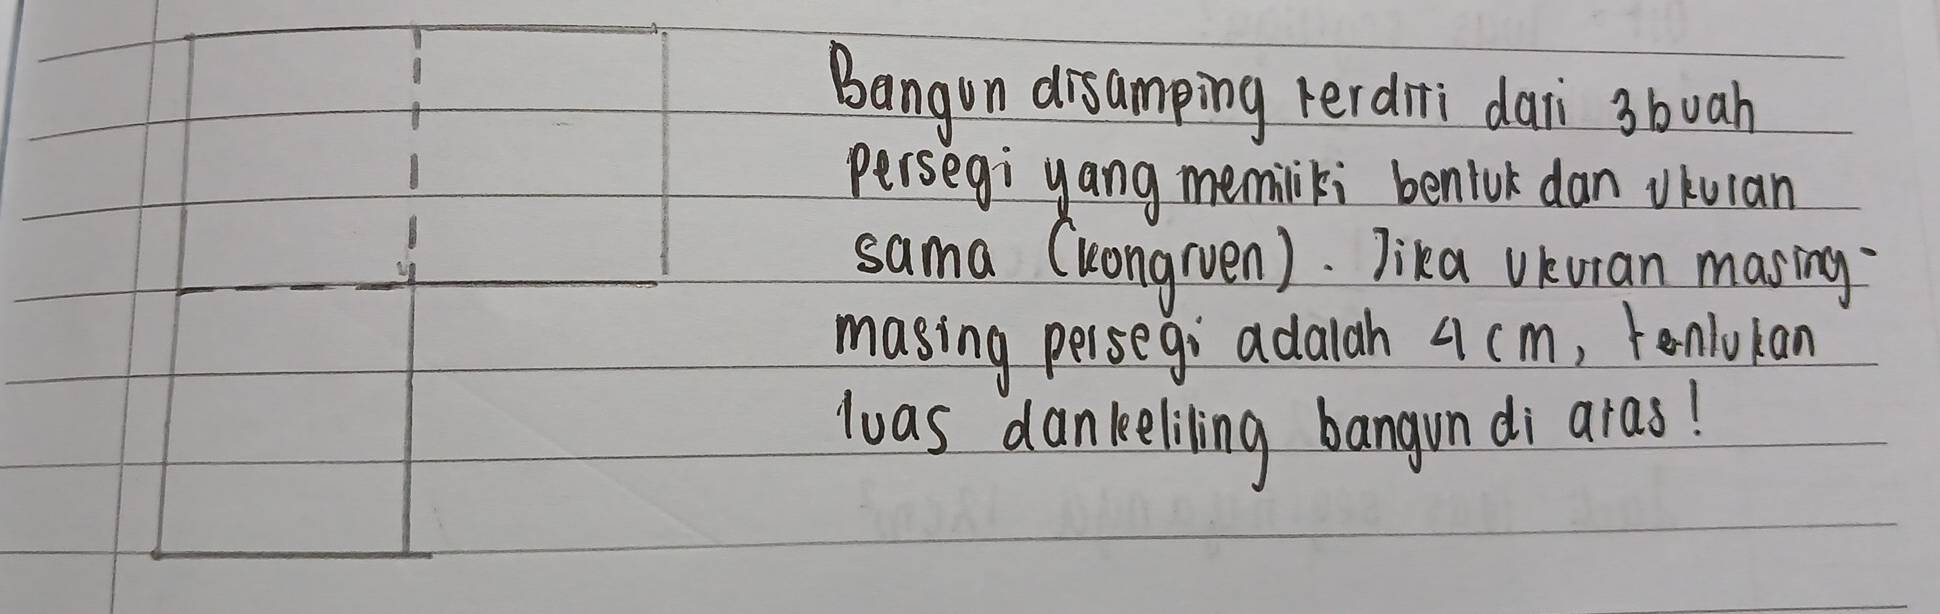 Bangun disamping terdiri dari 3 buah
persegi yang memiliki bentuk dan ukuran
sama (kongruen). Jika ukuran masing-
masing persegi adalah 4 cm, tentukan
luas dan keliling bangun di atas!